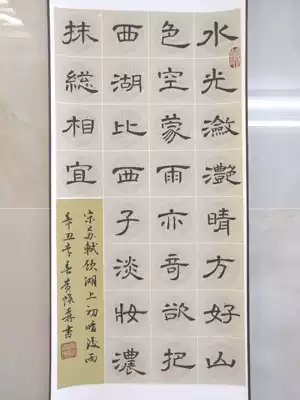 水光瀲灩晴方好山
色空蒙雨亦竒欲把
西湖比西子淡妝濃
抹総相宜
宋苏軾飲湖上初晴後雨
辛丑季春黄森書